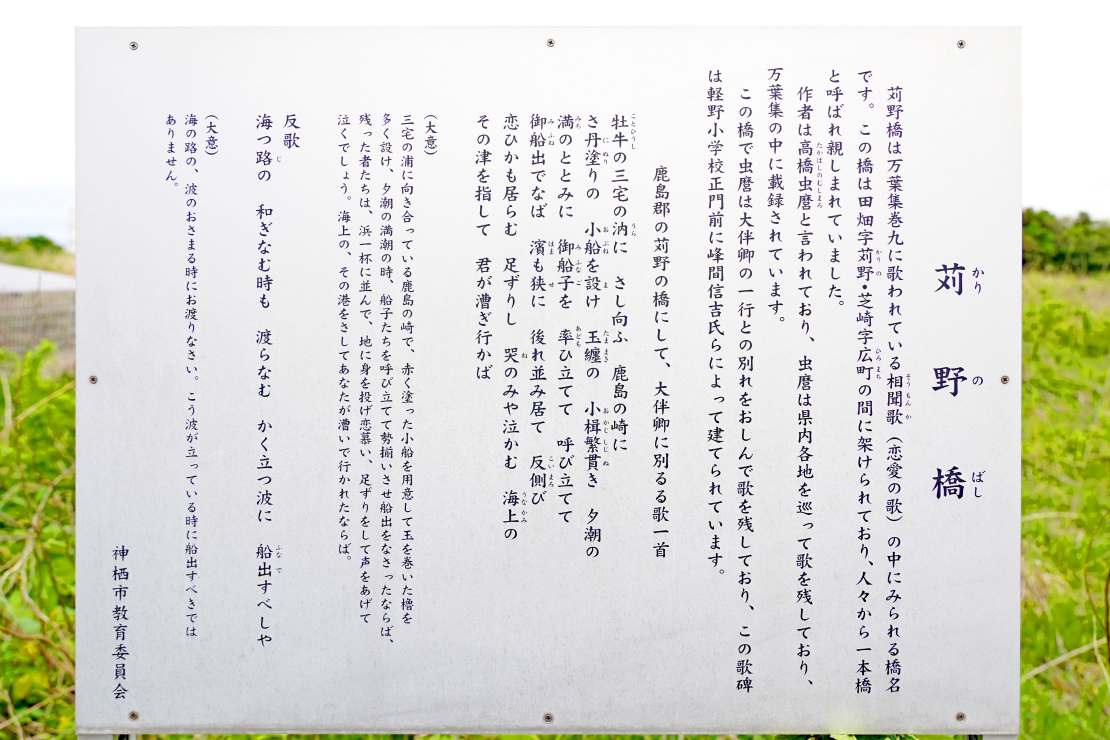 苅野橋
苅野橋は万葉集巻九に歌われている相聞歌（恋愛の歌）の中にみられる橋名
です。この橋は田畑字苅野・芝崎字広町の間に架けられており、人々から一本橋
と呼ばれ親しまれていました。
作者は高橋虫麿と言われており、虫麿は県内各地を巡って歌を残しており、
万葉集の中に載録されています。
この橋で虫麿は大伴卿の一行との別れをおしんで歌を残しており、この歌碑
は軽野小学校正門前に峰間信吉氏らによって建てられています。
鹿島郡の苅野の橋にして、大伴卿に別るる歌一首
牡牛の三宅の汭に さし向ふ 鹿島の崎に
さ丹塗りの 小船を設け 玉纏の 小楫繁貫き 夕潮の
満のととみに 御船子を 率ひ立てて 呼び立てて
御船出でなば 濱も狭に 後れ並み居て 反側び
恋ひかも居らむ 足ずりし 哭のみや泣かむ 海上の
その津を指して 君が漕ぎ行かば
（大意）
三宅の浦に向き合っている鹿島の崎で、赤く塗った小船を用意して玉を巻いた櫓を
多く設け、夕潮の満潮の時、船子たちを呼び立てて勢揃いさせ船出をなさったならば、
残った者たちは、浜一杯に並んで、地に身を投げ恋慕い、足ずりをして声をあげて
泣くでしょう。海上の、その港をさしてあなたが漕いで行かれたならば。
反歌
海つ路の 和ぎなむ時も 渡らなむ かく立つ波に 船出すべしや
（大意）
海の路の、波のおさまる時にお渡りなさい。こう波が立っている時に船出すべきでは
ありません。
神栖市教育委員会